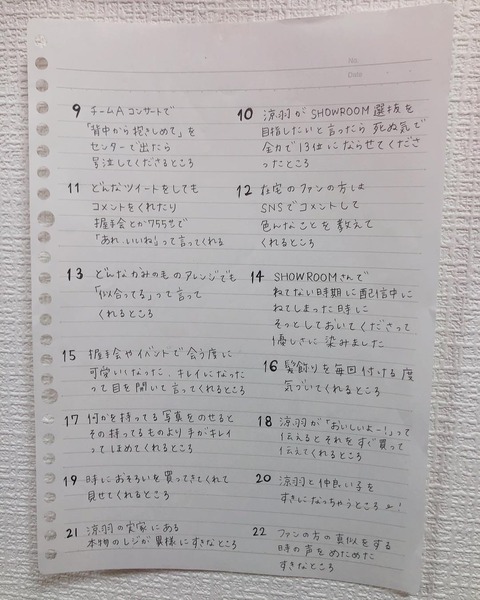 No.
Date
9 チームAコンサートで
「背中から抱きしめて」を
センターで出たら
号泣してくださるところ
10 涼羽がSHOWROOM選抜を
目指したいと言ったら死ぬ気で
全力で13位にならせてくださ
ったところ
11 どんなツイートをしても
コメントをくれたり
握手会とか755等で
「あれ、いいね」って言ってくれる
12 在宅のファンの方は
SNSでコメントして
色んなことを教えて
くれるところ
13 どんなかみのものアレンジでも
「似合ってる」って言って
くれるところ
14 SHOWROOMさんで
ねてない時期に配信中に
ねてしまった時に
そっとしておいてくださって
優しさに染みました
15 握手会やイベントで会う度に
可愛いくなった、キレイになった
って目を開いて言ってくれるところ
16 髪飾りを毎回付ける度
気づいてくれるところ
17 何かを持ってる写真をのせると
その持ってるものより手がキレイ
ってほめてくれるところ
18 涼羽が「おいしいよー!」って
伝えるとそれをすぐ買って
伝えてくれるところ
19 時におそろいを買ってきてくれて
見せてくれるところ
20 涼羽と仲良い子を
すきになっちゃうところ!
21 涼羽の実家にある
本物のレジが異様にすきなところ
22 ファンの方の真似をする
時の声をめためた
すきなところ